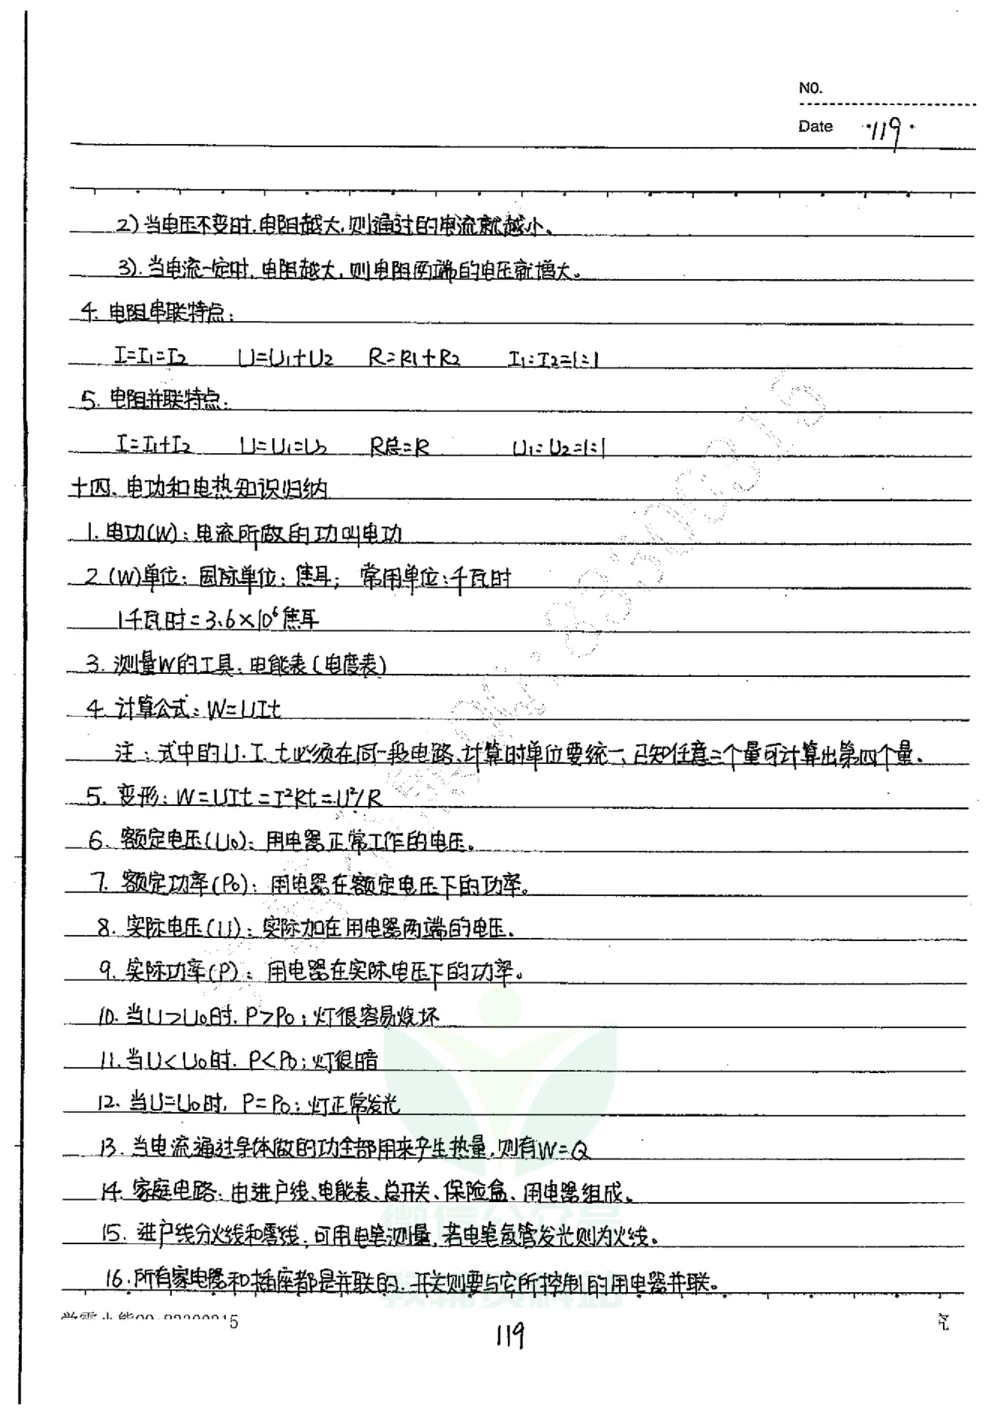 NO.
Date ·119·
2) 当电压不变时,电阻越大,则通过的电流就越小。
3). 当电流一定时,电阻越大,则电阻两端的电压就增大。
4. 电阻串联特点:
I=I₁=I₂ U=U₁+U₂ R=R₁+R₂ I₁:I₂=1:1
5. 电阻并联特点:
I=I₁+I₂ U=U₁=U₂ R总=R U₁:U₂=1:1
十四、电功和电热知识归纳
1. 电功(W):电流所做的功叫电功
2 (W)单位:国际单位:焦耳; 常用单位:千瓦时
1千瓦时=3.6×10⁶焦耳
3. 测量W的工具:电能表(电度表)
4. 计算公式:W=UIt
注:式中的U.I.t必须在同一段电路、计算时单位要统一、已知任意三个量可计算出第四个量。
5. 变形:W=UIt=I²Rt=U²/R
6. 额定电压(U₀):用电器正常工作的电压。
7. 额定功率(P₀):用电器在额定电压下的功率。
8. 实际电压(U):实际加在用电器两端的电压.
9. 实际功率(P):用电器在实际电压下的功率。
10. 当U>U₀时.P>P₀;灯很容易烧坏
11. 当U<U₀时.P<P₀;灯很暗
12. 当U=U₀时,P=P₀;灯正常发光
13. 当电流通过导体做的功全部用来产生热量,则有W=Q
14. 家庭电路:由进户线、电能表、总开关、保险盒、用电器组成。
15. 进户线分火线和零线,可用电笔测量,若电笔氖管发光则为火线。
16. 所有家电器和插座都是并联的.开关则要与它所控制的用电器并联。
微信公众号
教辅资料站
119